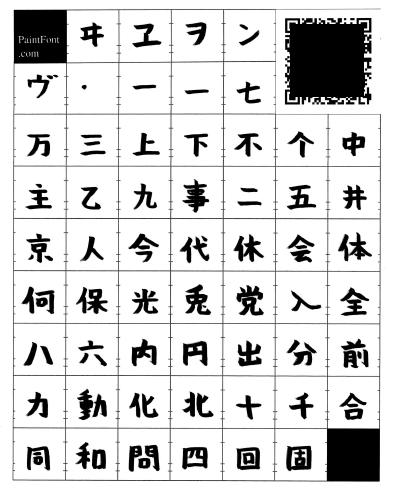 PaintFont
.com
ヰ ヱ ヲ ン
ヴ ・ ー 一 七
万 三 上 下 不 个 中
主 乙 九 事 二 五 井
京 人 今 代 休 会 体
何 保 光 兎 党 入 全
八 六 内 円 出 分 前
力 動 化 北 十 千 合
同 和 問 四 回 固